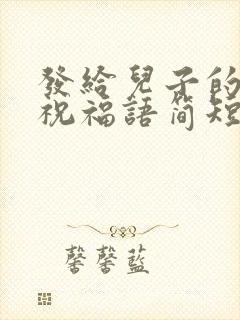 發給兒子的
祝福語簡短
馨馨藍